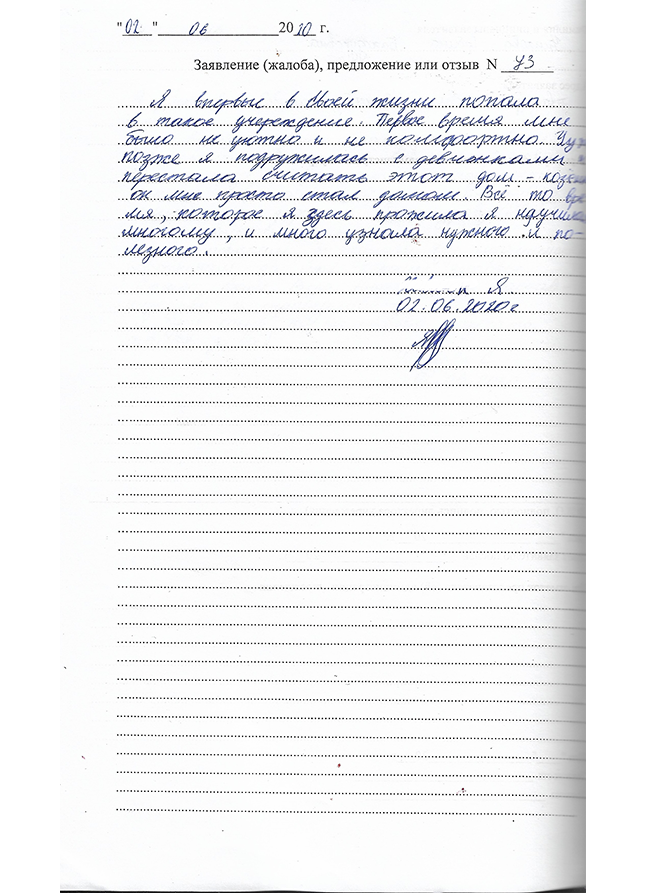 "02" 06 2020 г.
Заявление (жалоба), предложение или отзыв N 73
Я впервые в своей жизни попала
в такое учереждение. Первое время мне
было не уютно и не комфортно. Чу
позже я подружилась с девчонками
перестала считать этот дом – казён
он мне просто стал домом. Всё то вре
мя, которое я здесь прожила я научила
многому, и много узнала нужного и по-
лезного.
Я.
02.06.2020г